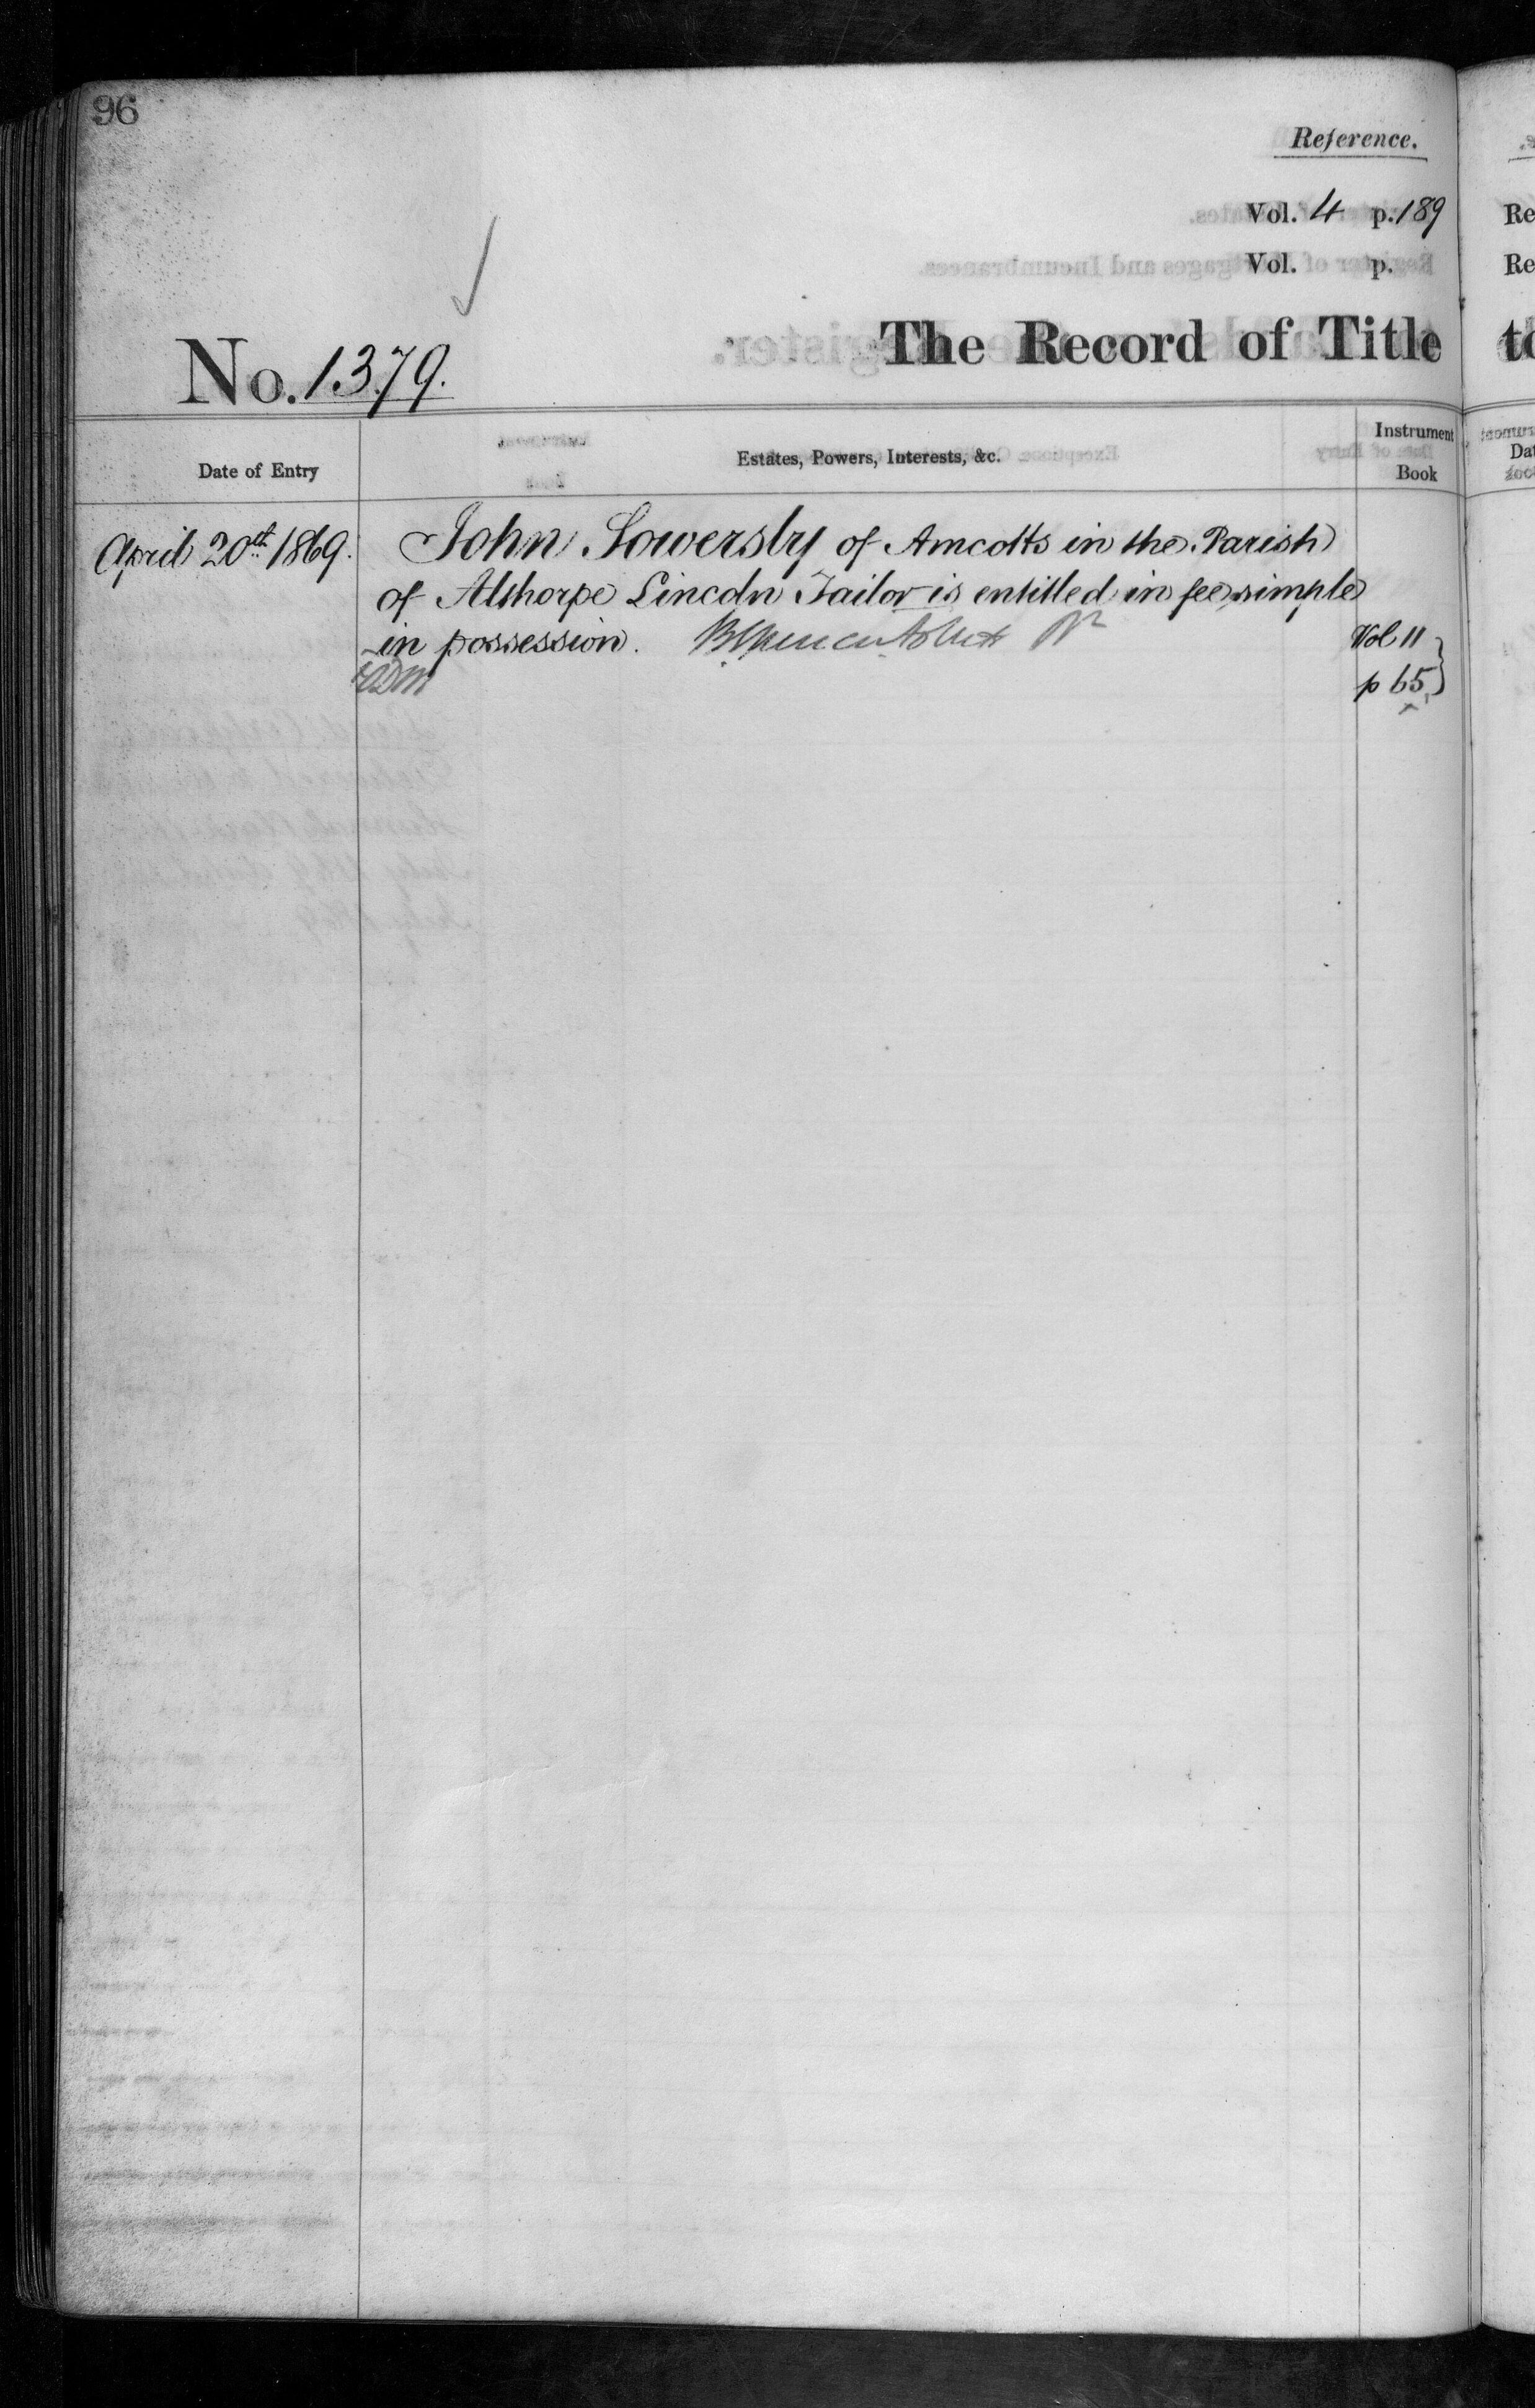 96
Reference.
Vol. 4 p. 189
Vol. p.
No. 1379.
The Record of Title
Date of Entry
Estates, Powers, Interests, &c.
Instrument
Book
April 20th 1869.
John Sowersby of Amcotts in the Parish
of Althorpe Lincoln Tailor is entitled in fee simple
in possession.
Vol 11
p 65